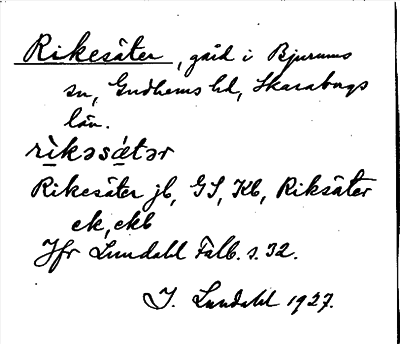 Rikesäter, gård i Bjurums
sn, Gudhems hd, Skaraborgs
län.
rìkəsǽtər
Rikesäter jb, GS, Kb, Riksäter
ek, ekb
Jfr Lundahl Falb. s. 32.
I. Lundahl 1927.